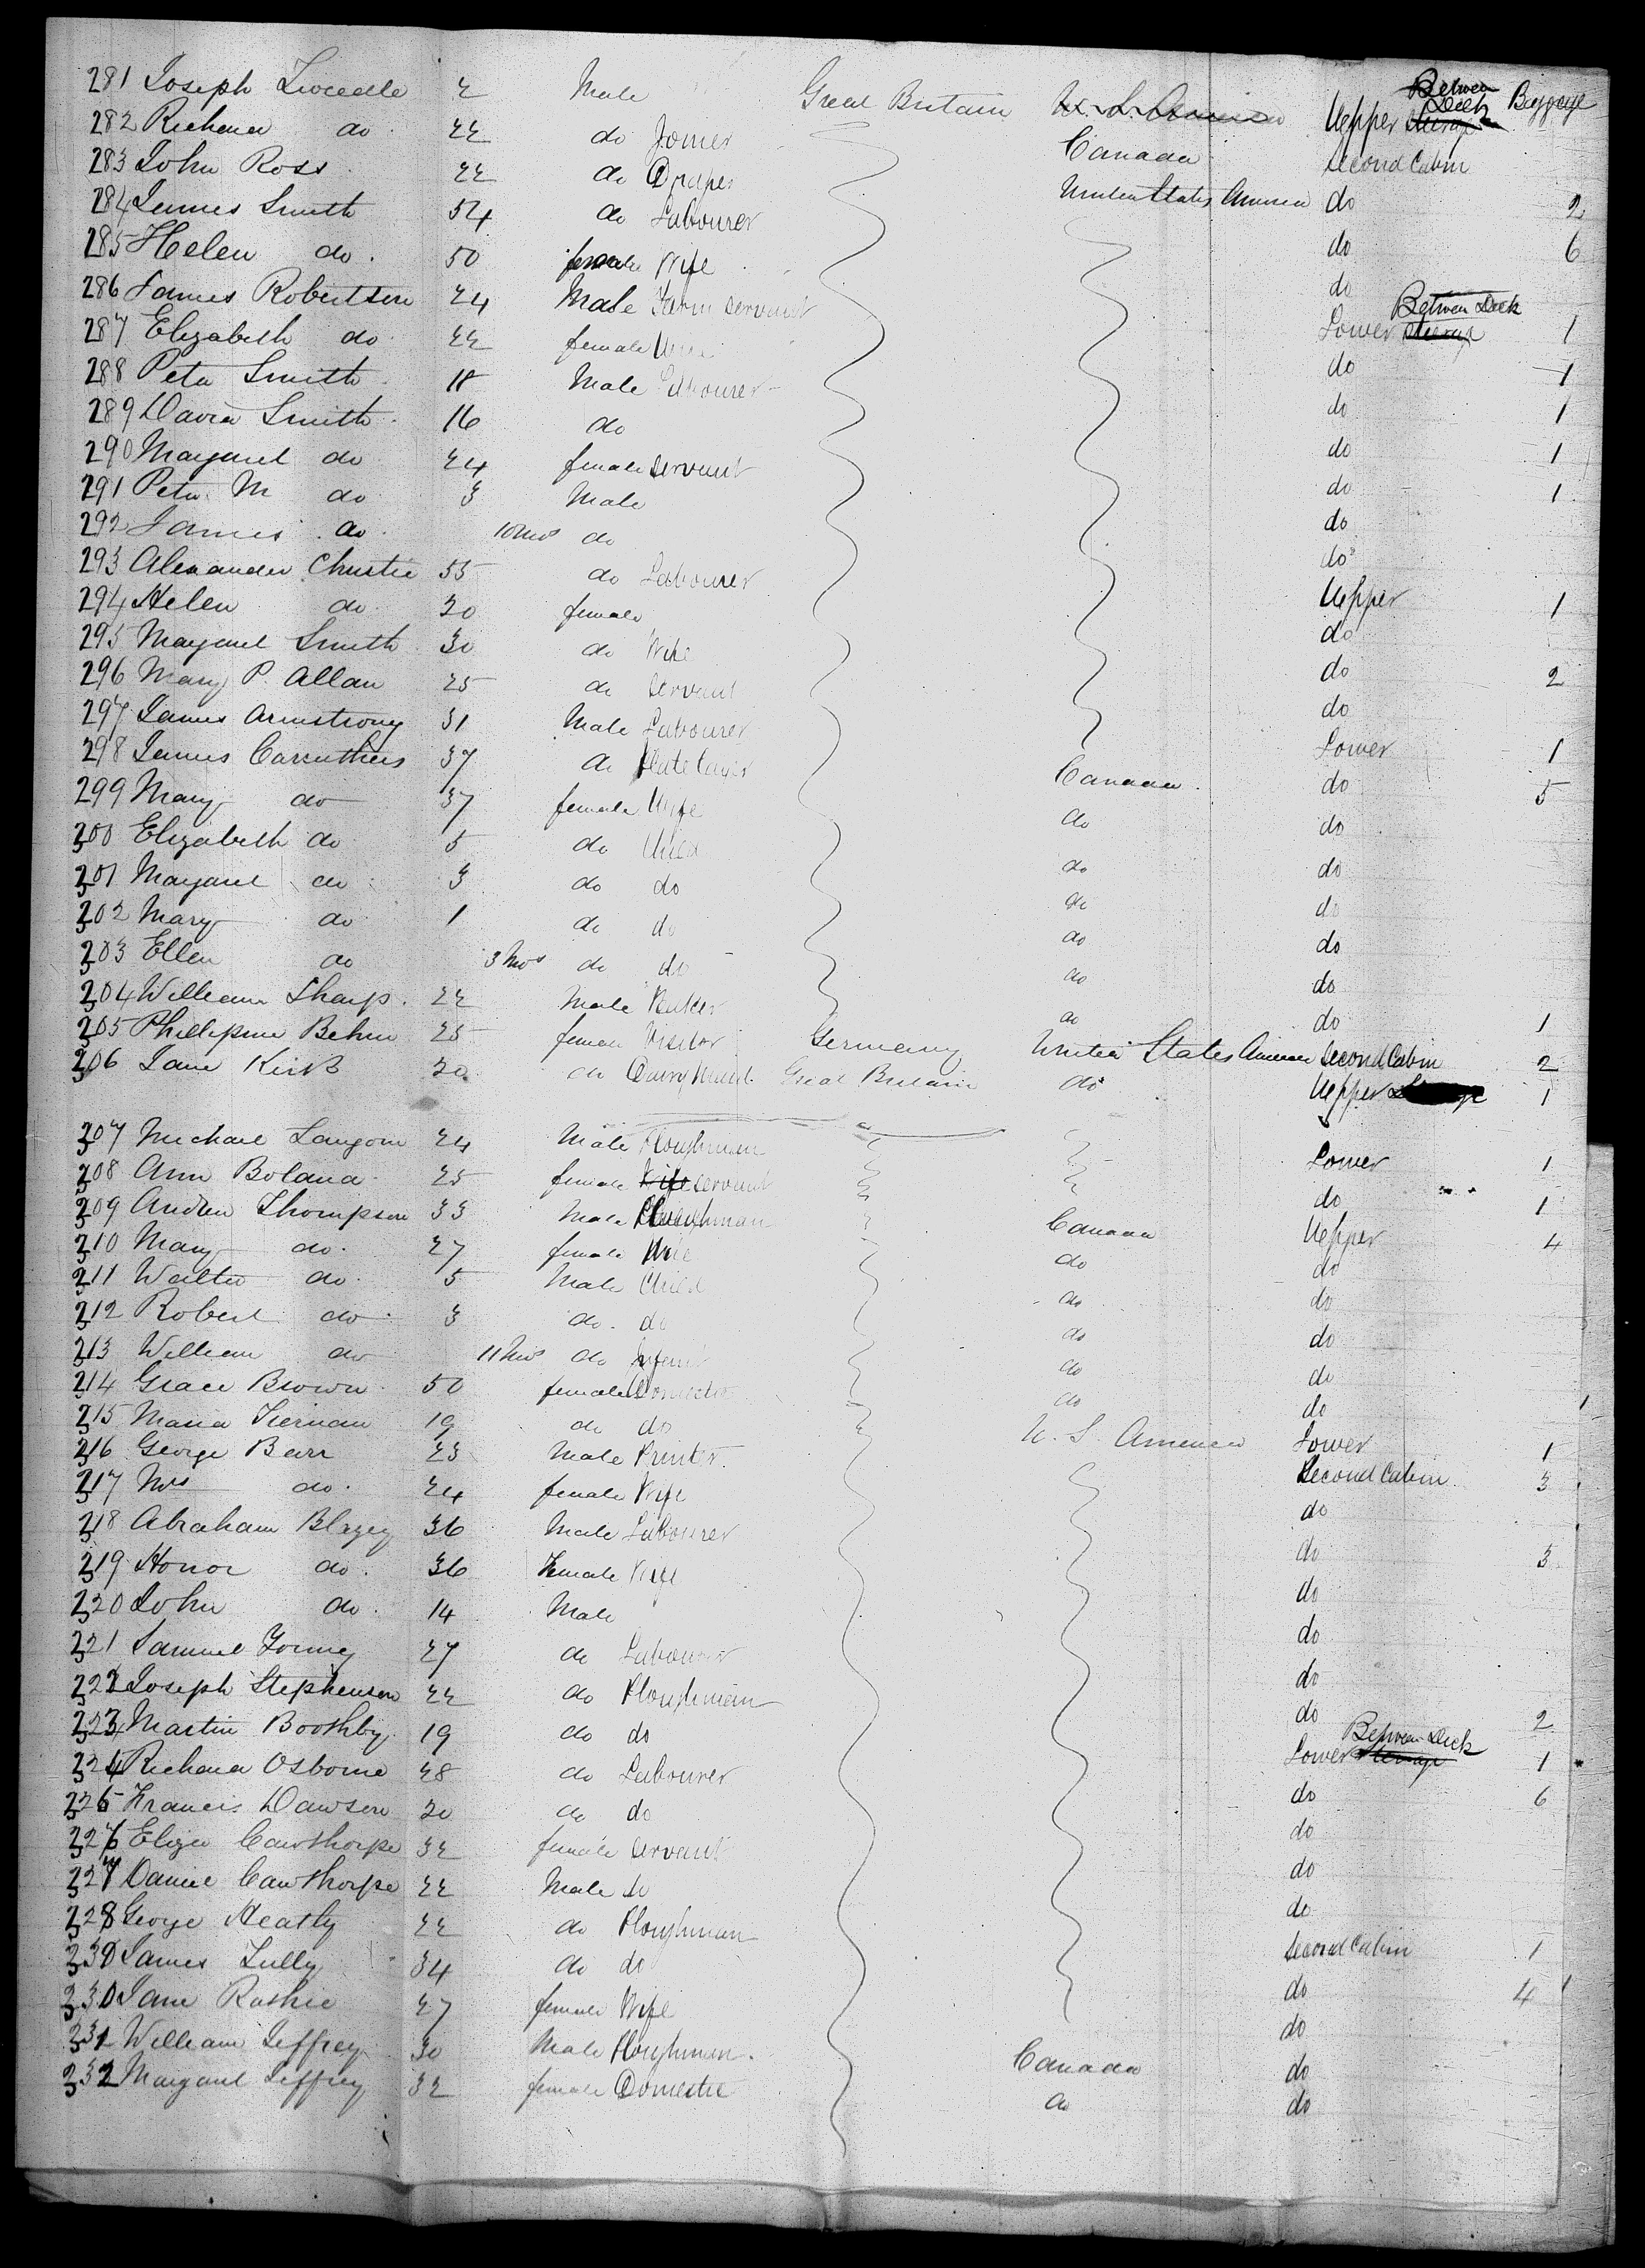 Between Deck Baggage
281 Joseph Tweedle 2 Male Great Britain U. S. America Upper Steerage
282 Richard do 22 do Joiner Canada Second Cabin
283 John Ross 22 do Draper United States America do 2
284 James Smith 54 do Labourer do 6
285 Helen do 50 female Wife do
286 James Robertson 24 Male Farm Servant Between Deck Lower Steerage 1
287 Elizabeth do 22 female Wife do 1
288 Peter Smith 18 Male Labourer do 1
289 David Smith 16 do do 1
290 Margaret do 24 female Servant do 1
291 Peter M do 3 Male do
292 James do 10 Mos do do
293 Alexander Christie 55 do Labourer Upper 1
294 Helen do 20 female do
295 Margaret Smith 30 do Wife do 2
296 Mary P. Allan 25 do Servant do
297 James Armstrong 31 Male Labourer Lower 1
298 James Carruthers 37 do Platelayer Canada do 5
299 Mary do 37 female Wife do do
300 Elizabeth do 5 do Child do do
301 Margaret do 3 do do do do
302 Mary do 1 do do do do
303 Ellen do 3 Mos do do do do
304 William Sharp 22 Male Baker do do 1
305 Phillipine Behm 25 female Visitor Germany United States America Second Cabin 2
306 Jane Kirk 20 do Dairy Maid Great Britain do Upper 1
307 Michael Langon 24 Male Ploughman Lower 1
308 Ann Boland 25 female Wife Servant do 1
309 Andrew Thompson 33 Male Ploughman Canada Upper 4
310 Mary do 27 female Wife do do
311 Walter do 5 Male Child do do
312 Robert do 3 do do do do
313 William do 11 Mos do Infant do do
314 Grace Brown 50 female Domestic do do
315 Maria Tiernan 19 do do U. S. America Lower 1
316 George Barr 23 Male Printer Second Cabin 3
317 Mrs do 24 female Wife do
318 Abraham Blazey 36 Male Labourer do 3
319 Honor do 36 Female Wife do
320 John do 14 Male do
321 Samuel Young 27 do Labourer do
322 Joseph Stephenson 22 do Ploughman do 2
323 Martin Boothby 19 do do Between Deck Lower Steerage 1
324 Richard Osborne 28 do Labourer do 6
325 Francis Dawson 20 do do do
326 Eliza Cawthorpe 32 female Servant do
327 Daniel Cawthorpe 22 Male do do
328 George Heatly 22 do Ploughman Second Cabin 1
330 James Tully 34 do do do 4
330 Jane Rathie 27 female Wife do
331 William Jeffrey 30 Male Ploughman Canada do
332 Margaret Jeffrey 32 female Domestic do do